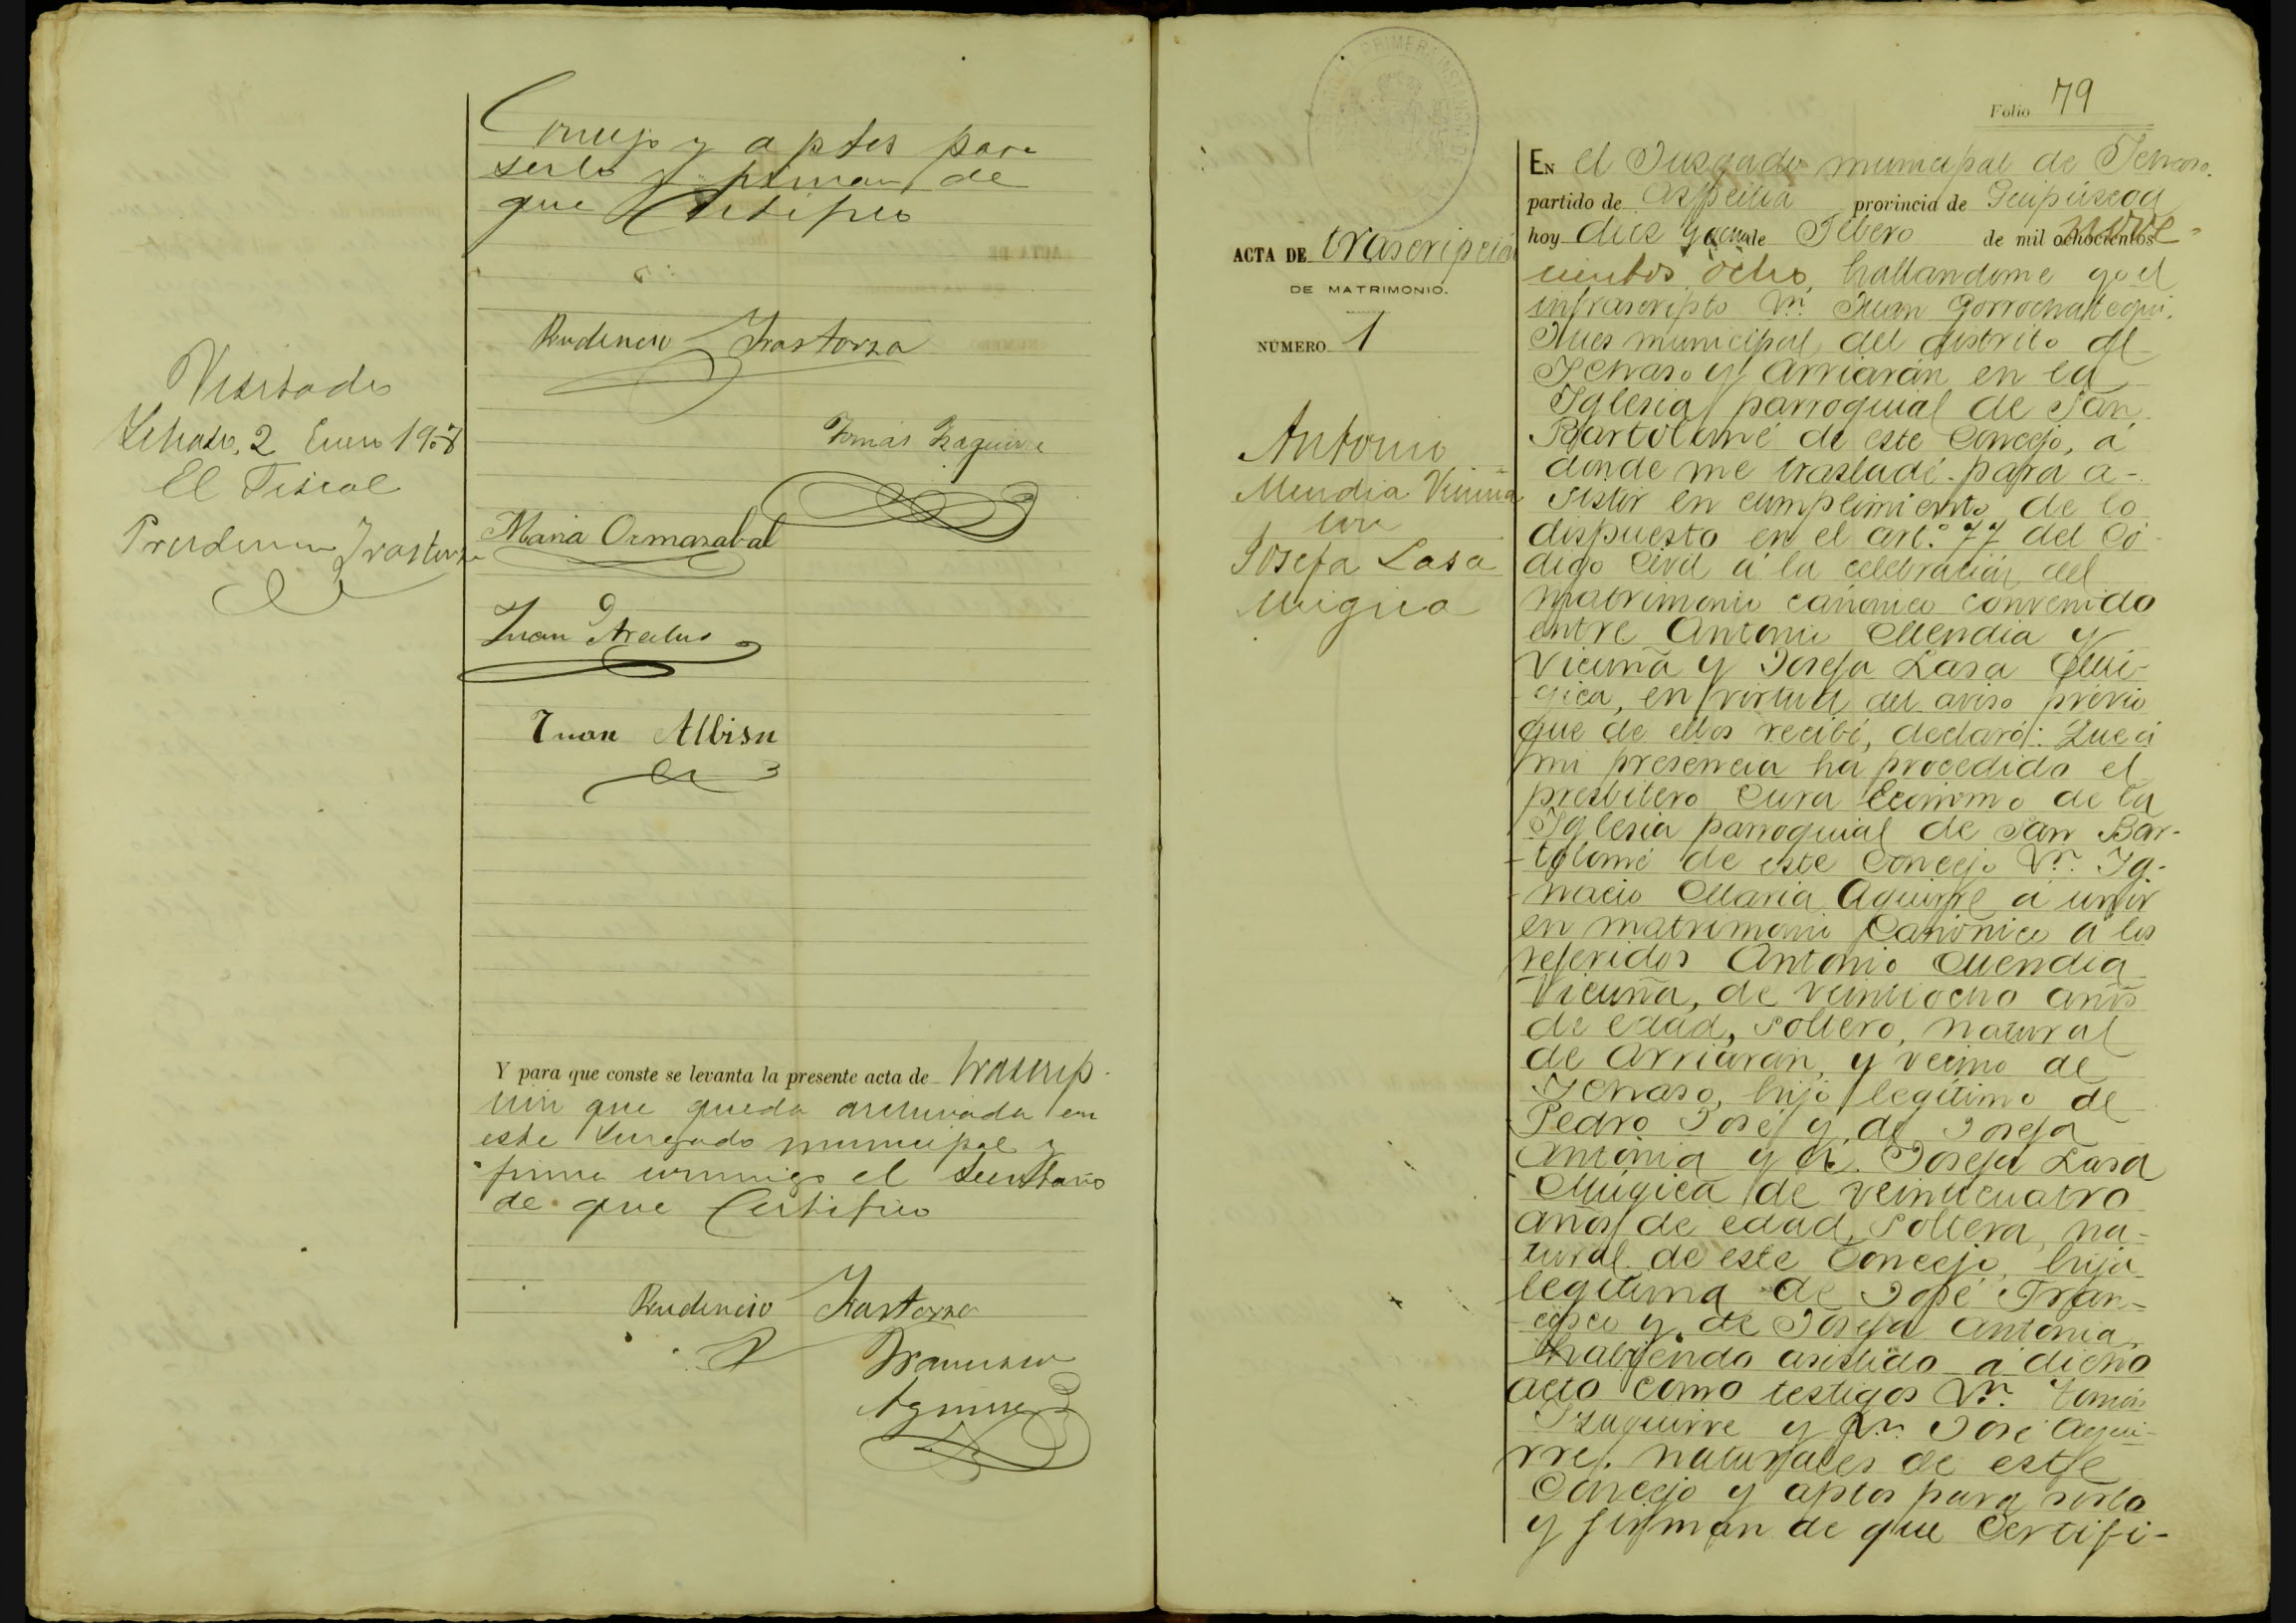 Concejo y aptos para
serlo y firman de
que Certifico
Prudencio Irastorza
Tomás Izaguirre
Maria Ormazabal
Juan Aralus
Juan Albisu
Visitado
Ichaso, 2 Enero 1908
El Fiscal
Prudencio Irastorza
Y para que conste se levanta la presente acta de trascrip-
ción que queda archivada en
este Juzgado municipal y
firma conmigo el Secretario
de que Certifico
Prudencio Irastorza
Francisco
Aguirre
PRIMERA INSTANCIA DE
Folio 79
ACTA DE trascripción
DE MATRIMONIO.
NÚMERO 1
Antonio
Mendia Vicuña
con
Josefa Lasa
Mugica
EN el Jusgado municipal de Ichaso.
partido de Aspeitia provincia de Guipúscoa
hoy dies y de Febero de mil ochocientos nove-
cientos ocho, hallandome yo el
infrascripto Dn. Juan Gorrochategui.
Jues municipal del distrito de
Ichaso y Arriarán en la
Iglesia parroquial de San
Bartolomé de este Concejo, á
donde me trasladé para a-
sistir en cumplimiento de lo
dispuesto en el art.º 77 del Có-
digo Civil á la celebración del
matrimonio canonico convenido
entre Antonio Mendia y
Vicuña y Josefa Lasa Mú-
gica, en virtud del aviso previo
que de ellos recibí, declaró: Que á
mi presencia ha procedido el
presbitero Cura Ecónomo de la
Iglesia parroquial de San Bar-
tolomé de este Concejo Dn. Ig-
nacio Maria Aguirre á unir
en matrimonio Canónico á los
referidos Antonio Mendia
Vicuña, de veintiocho años
de edad, soltero, natural
de Arriarán, y vecino de
Ichaso, hijo legítimo de
Pedro José y de Josefa
Antonia y á Josefa Lasa
Múgica de veinticuatro
años de edad, soltera, na-
tural de este Concejo, hija
legitima de José Fran-
cisco y de Josefa Antonia,
habiendo asistido á dicho
acto como testigos Dn. Tomás
Izaguirre y Dn. José Agui-
rre, naturales de este
Concejo y aptos para serlo
y firman de que Certifi-